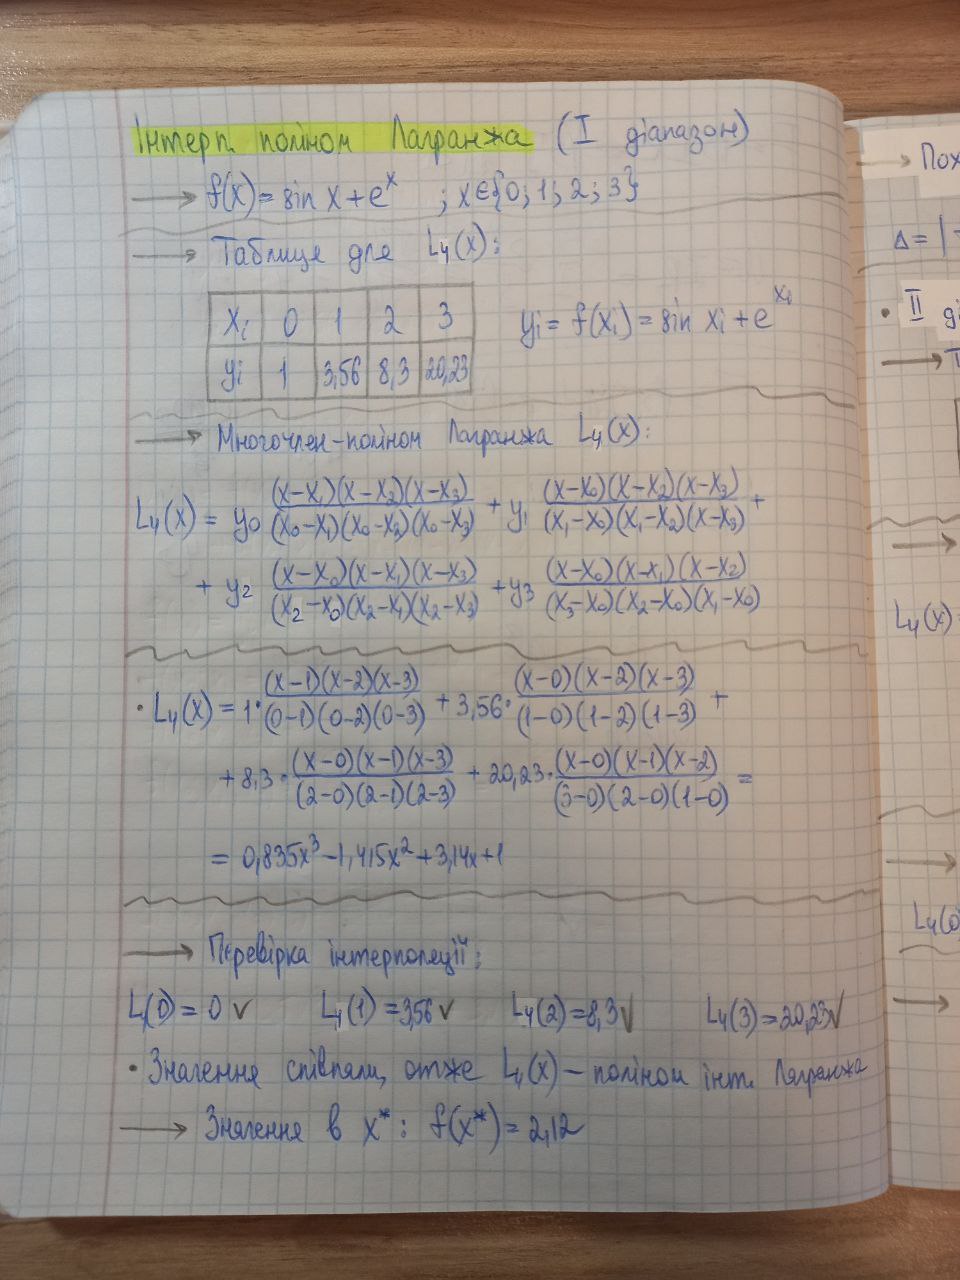 Інтерп. поліном Лагранжа (I діапазон)
→ f(x) = sin x + e^x ; x∈{0; 1; 2; 3}
→ Таблиця для L₄(x):
xᵢ 0 1 2 3
yᵢ 1 3,56 8,3 20,23
yᵢ = f(xᵢ) = sin xᵢ + e^xᵢ
→ Многочлен-поліном Лагранжа L₄(x):
L₄(x) = y₀ (x-x₁)(x-x₂)(x-x₃)/(x₀-x₁)(x₀-x₂)(x₀-x₃) + y₁ (x-x₀)(x-x₂)(x-x₃)/(x₁-x₀)(x₁-x₂)(x-x₃) +
+ y₂ (x-x₀)(x-x₁)(x-x₃)/(x₂-x₀)(x₂-x₁)(x₂-x₃) + y₃ (x-x₀)(x-x₁)(x-x₂)/(x₃-x₀)(x₂-x₀)(x₁-x₀)
• L₄(x) = 1·(x-1)(x-2)(x-3)/(0-1)(0-2)(0-3) + 3,56·(x-0)(x-2)(x-3)/(1-0)(1-2)(1-3) +
+ 8,3·(x-0)(x-1)(x-3)/(2-0)(2-1)(2-3) + 20,23·(x-0)(x-1)(x-2)/(3-0)(2-0)(1-0) =
= 0,835x³ - 1,415x² + 3,14x + 1
→ Перевірка інтерполяції:
L(0) = 0 ✓ L₄(1) = 3,56 ✓ L₄(2) = 8,3 ✓ L₄(3) = 20,23 ✓
• Значення співпали, отже L₄(x) – поліном інт. Лагранжа
→ Значення в x*: f(x*) = 2,12
→ Пох
Δ = |
• II ді
→
L₄(x)
→
L₄(0)
→